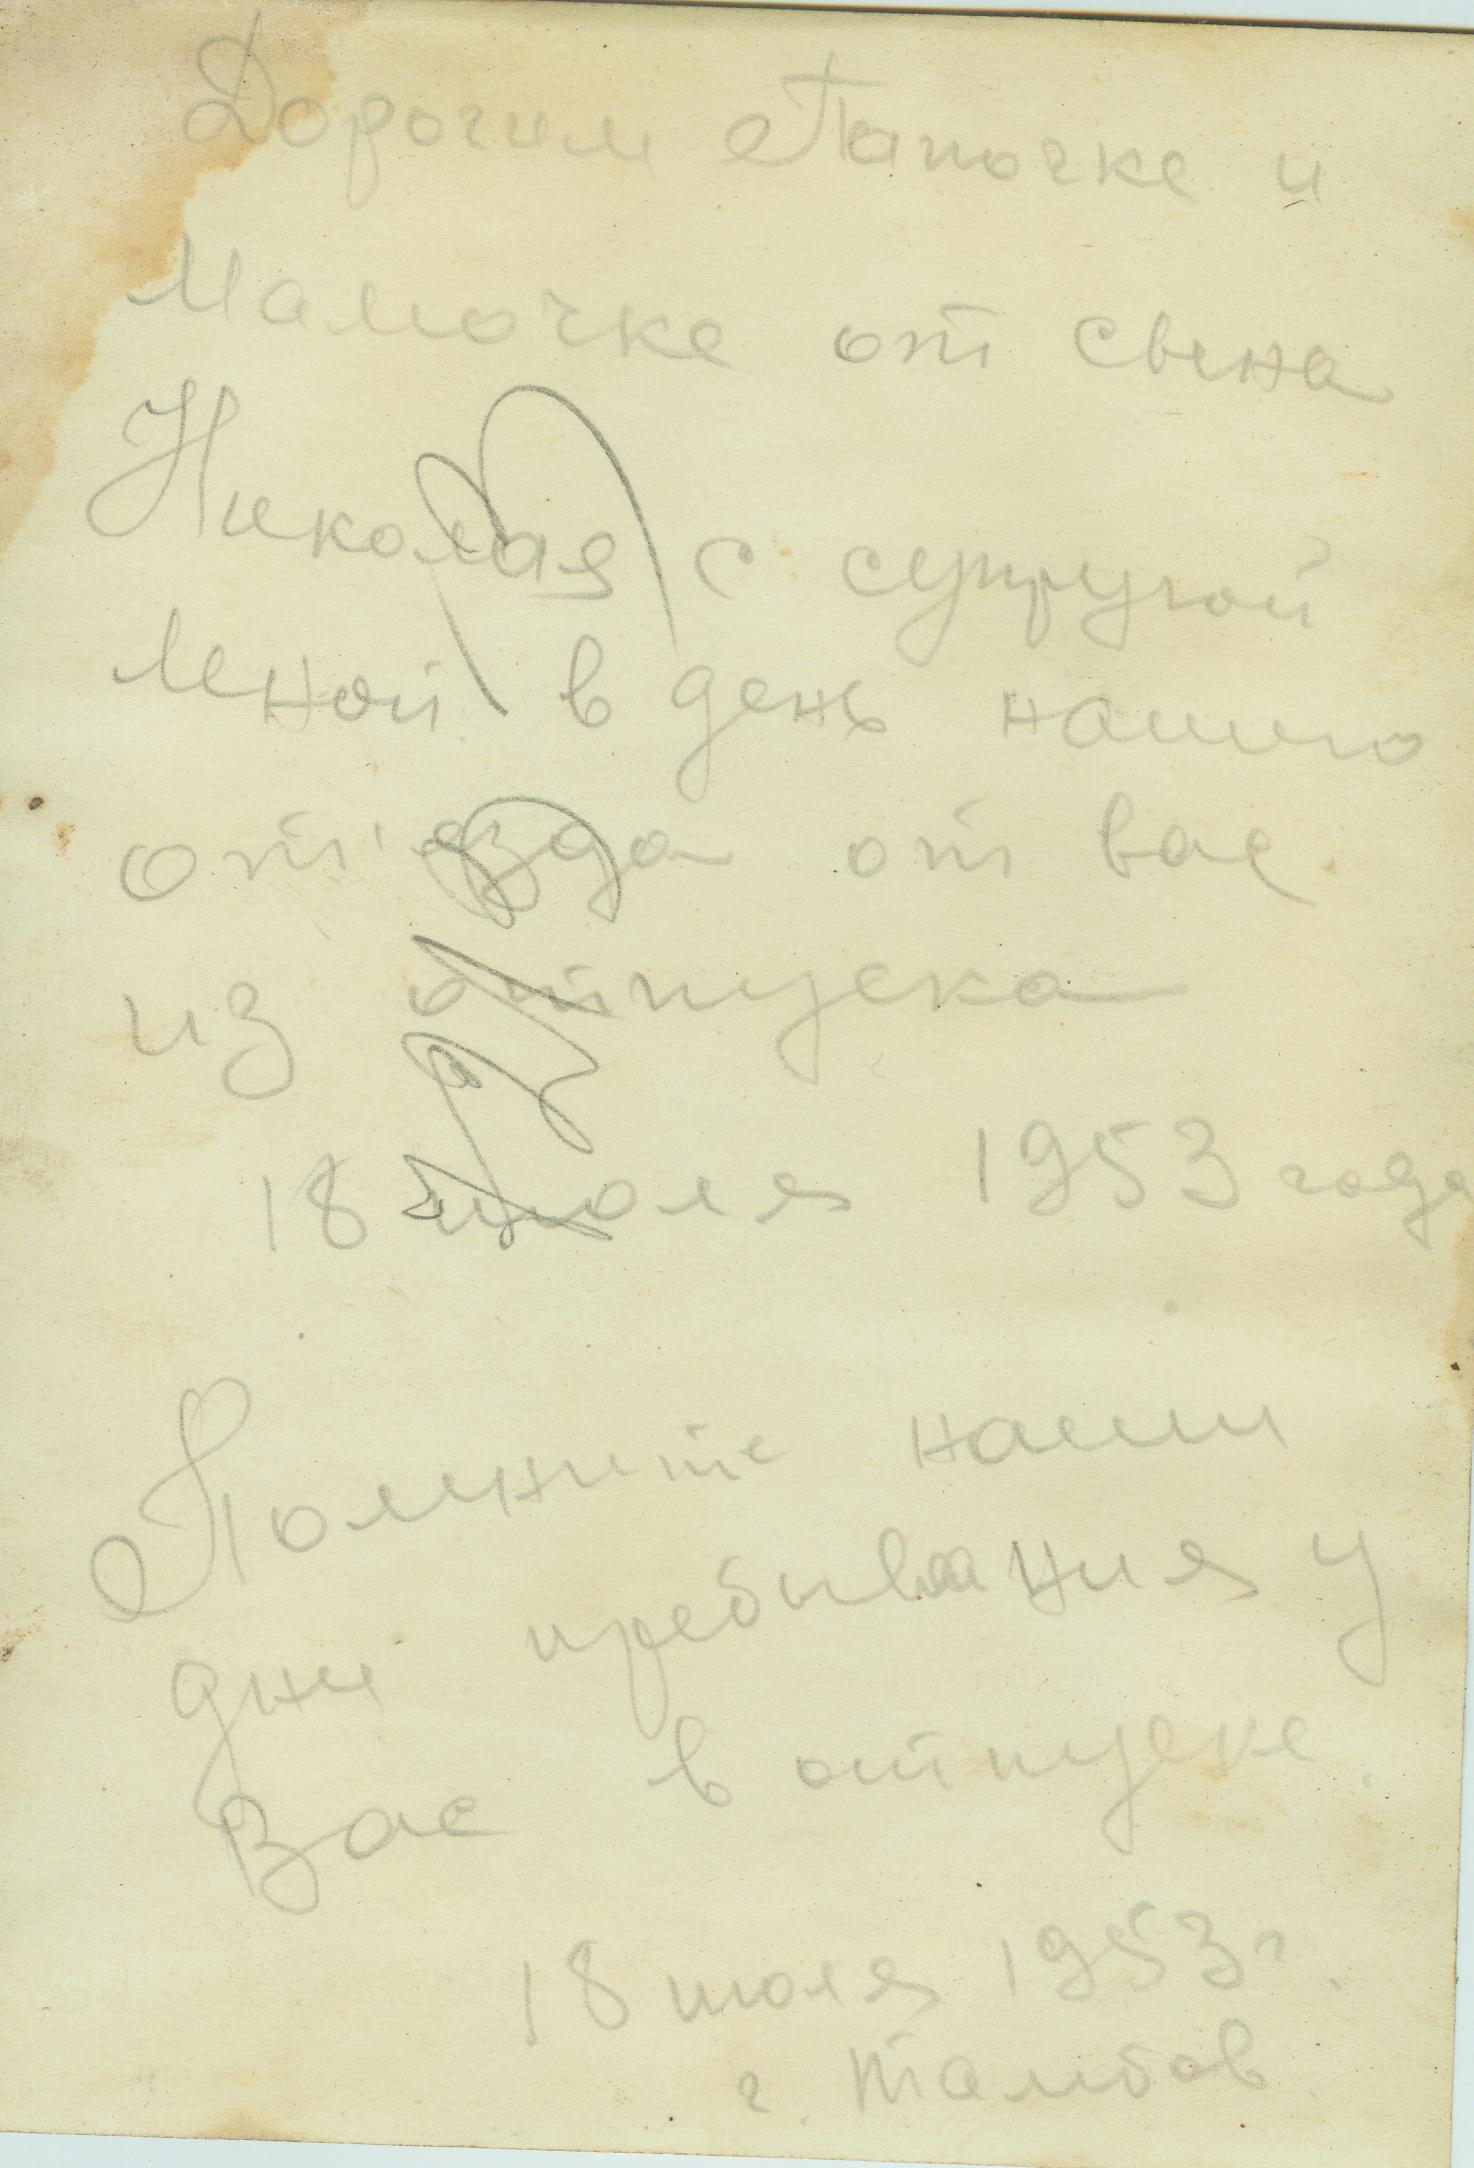 Дорогим Папочке и
Мамочке от сына
Николая с супругой
Леной в день нашего
от'езда от вас
из отпуска
18 июля 1953 года
Помните наши
дни пребывания у
Вас в отпуске.
18 июля 1953 г.
г. Тамбов